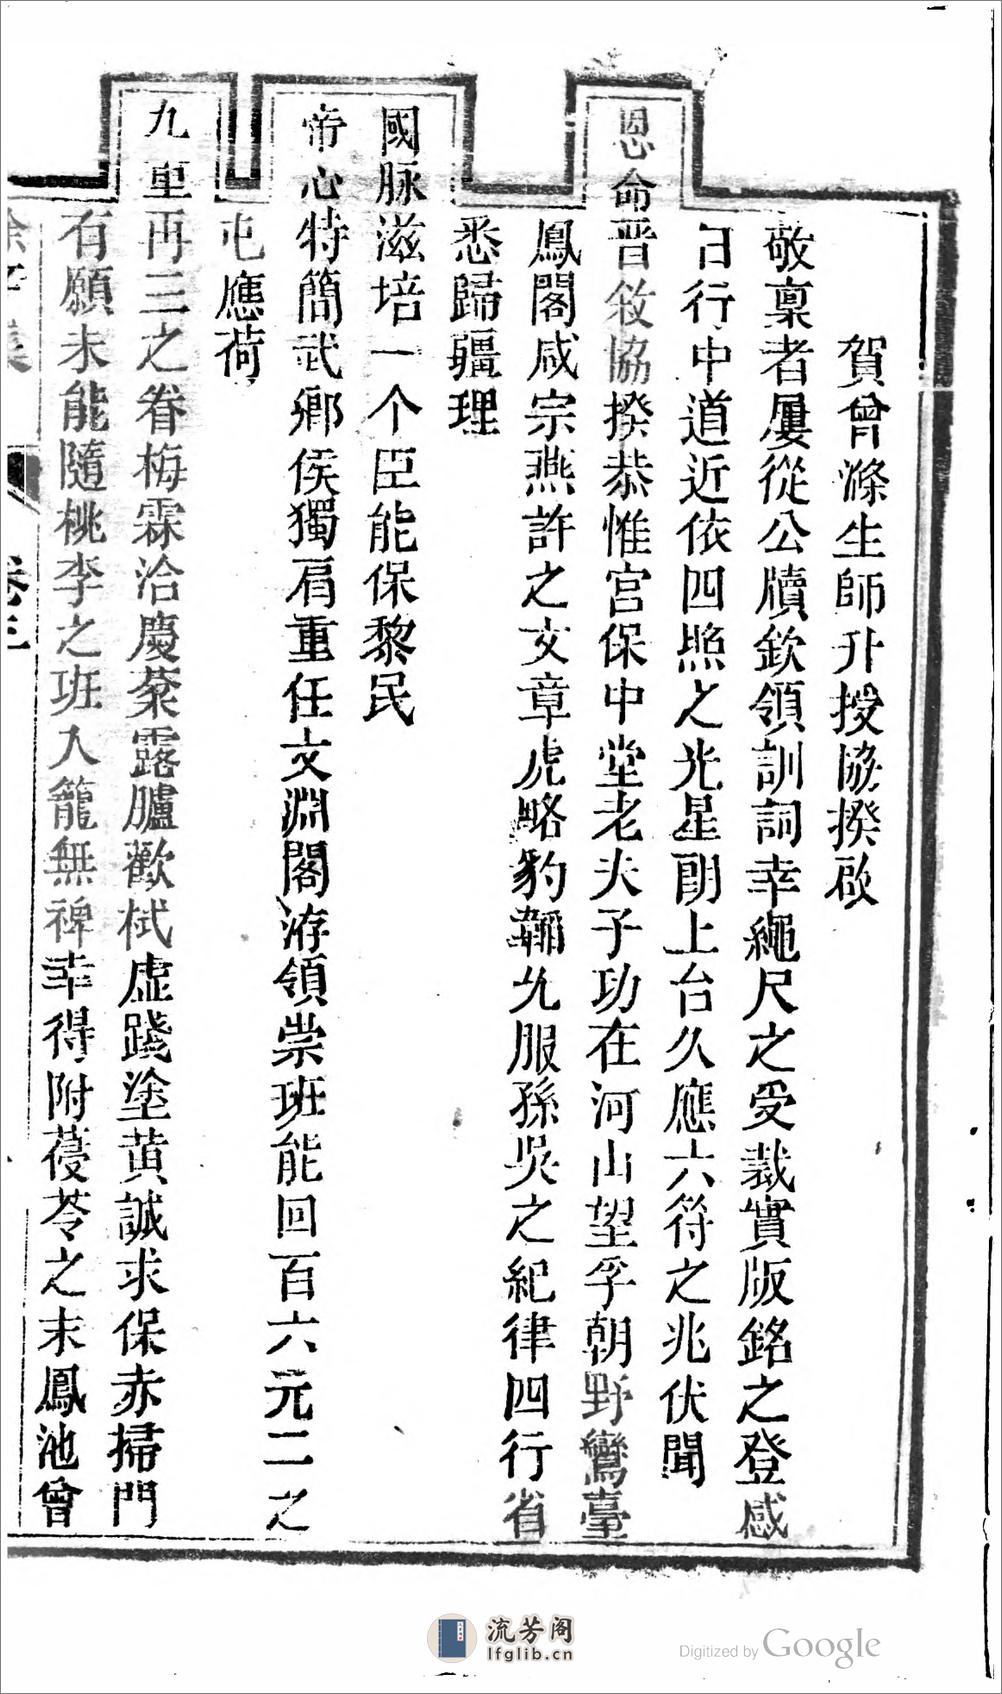 賀曾滌生師升授協揆啟
敬稟者屢從公牘欽領訓詞幸繩尺之受裁實版銘之登感
日行中道近依四照之光星朗上台久應六符之兆伏聞
恩命晉敘協揆恭惟宮保中堂老夫子功在河山望孚朝野鸞臺
鳳閣咸宗燕許之文章虎略豹韜九服孫吳之紀律四行省
悉歸疆理
國脉滋培一个臣能保黎民
帝心特簡武鄉侯獨肩重任文淵閣洊領崇班能回百六元二之
屯應荷
九重再三之眷梅霖洽慶蔾露臚歡栻虛踐塗黃誠求保赤掃門
有願未能隨桃李之班入籠無裨幸得附葠苓之末鳳池曾
卷三
流芳阁
lfglib.cn
Digitized by Google